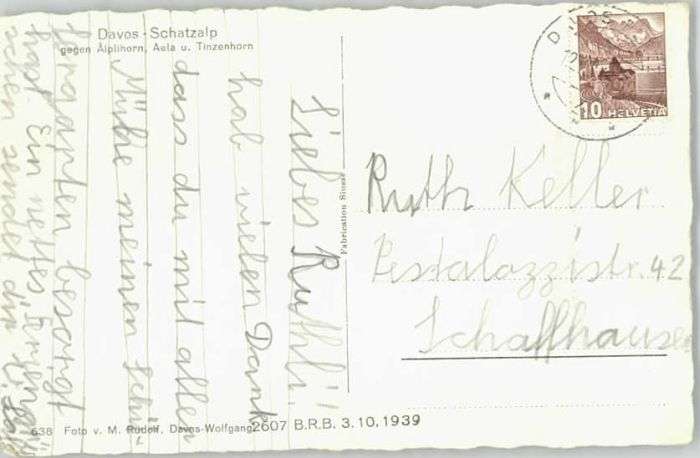 Davos - Schatzalp
gegen Älplihorn, Aela u. Tinzenhorn
DAVOS
10 HELVETIA
Liebes Ruthli!
hab vielen Dank
dass du mit allen
Mühe meinen Schü-
besorgt
hast. Ein nettes
sendet dir
Fabrication Suisse
Ruth Keller
Pestalozzistr. 42
Schaffhausen
638 Foto v. M. Rudolf, Davos-Wolfgang
2607 B.R.B. 3.10.1939